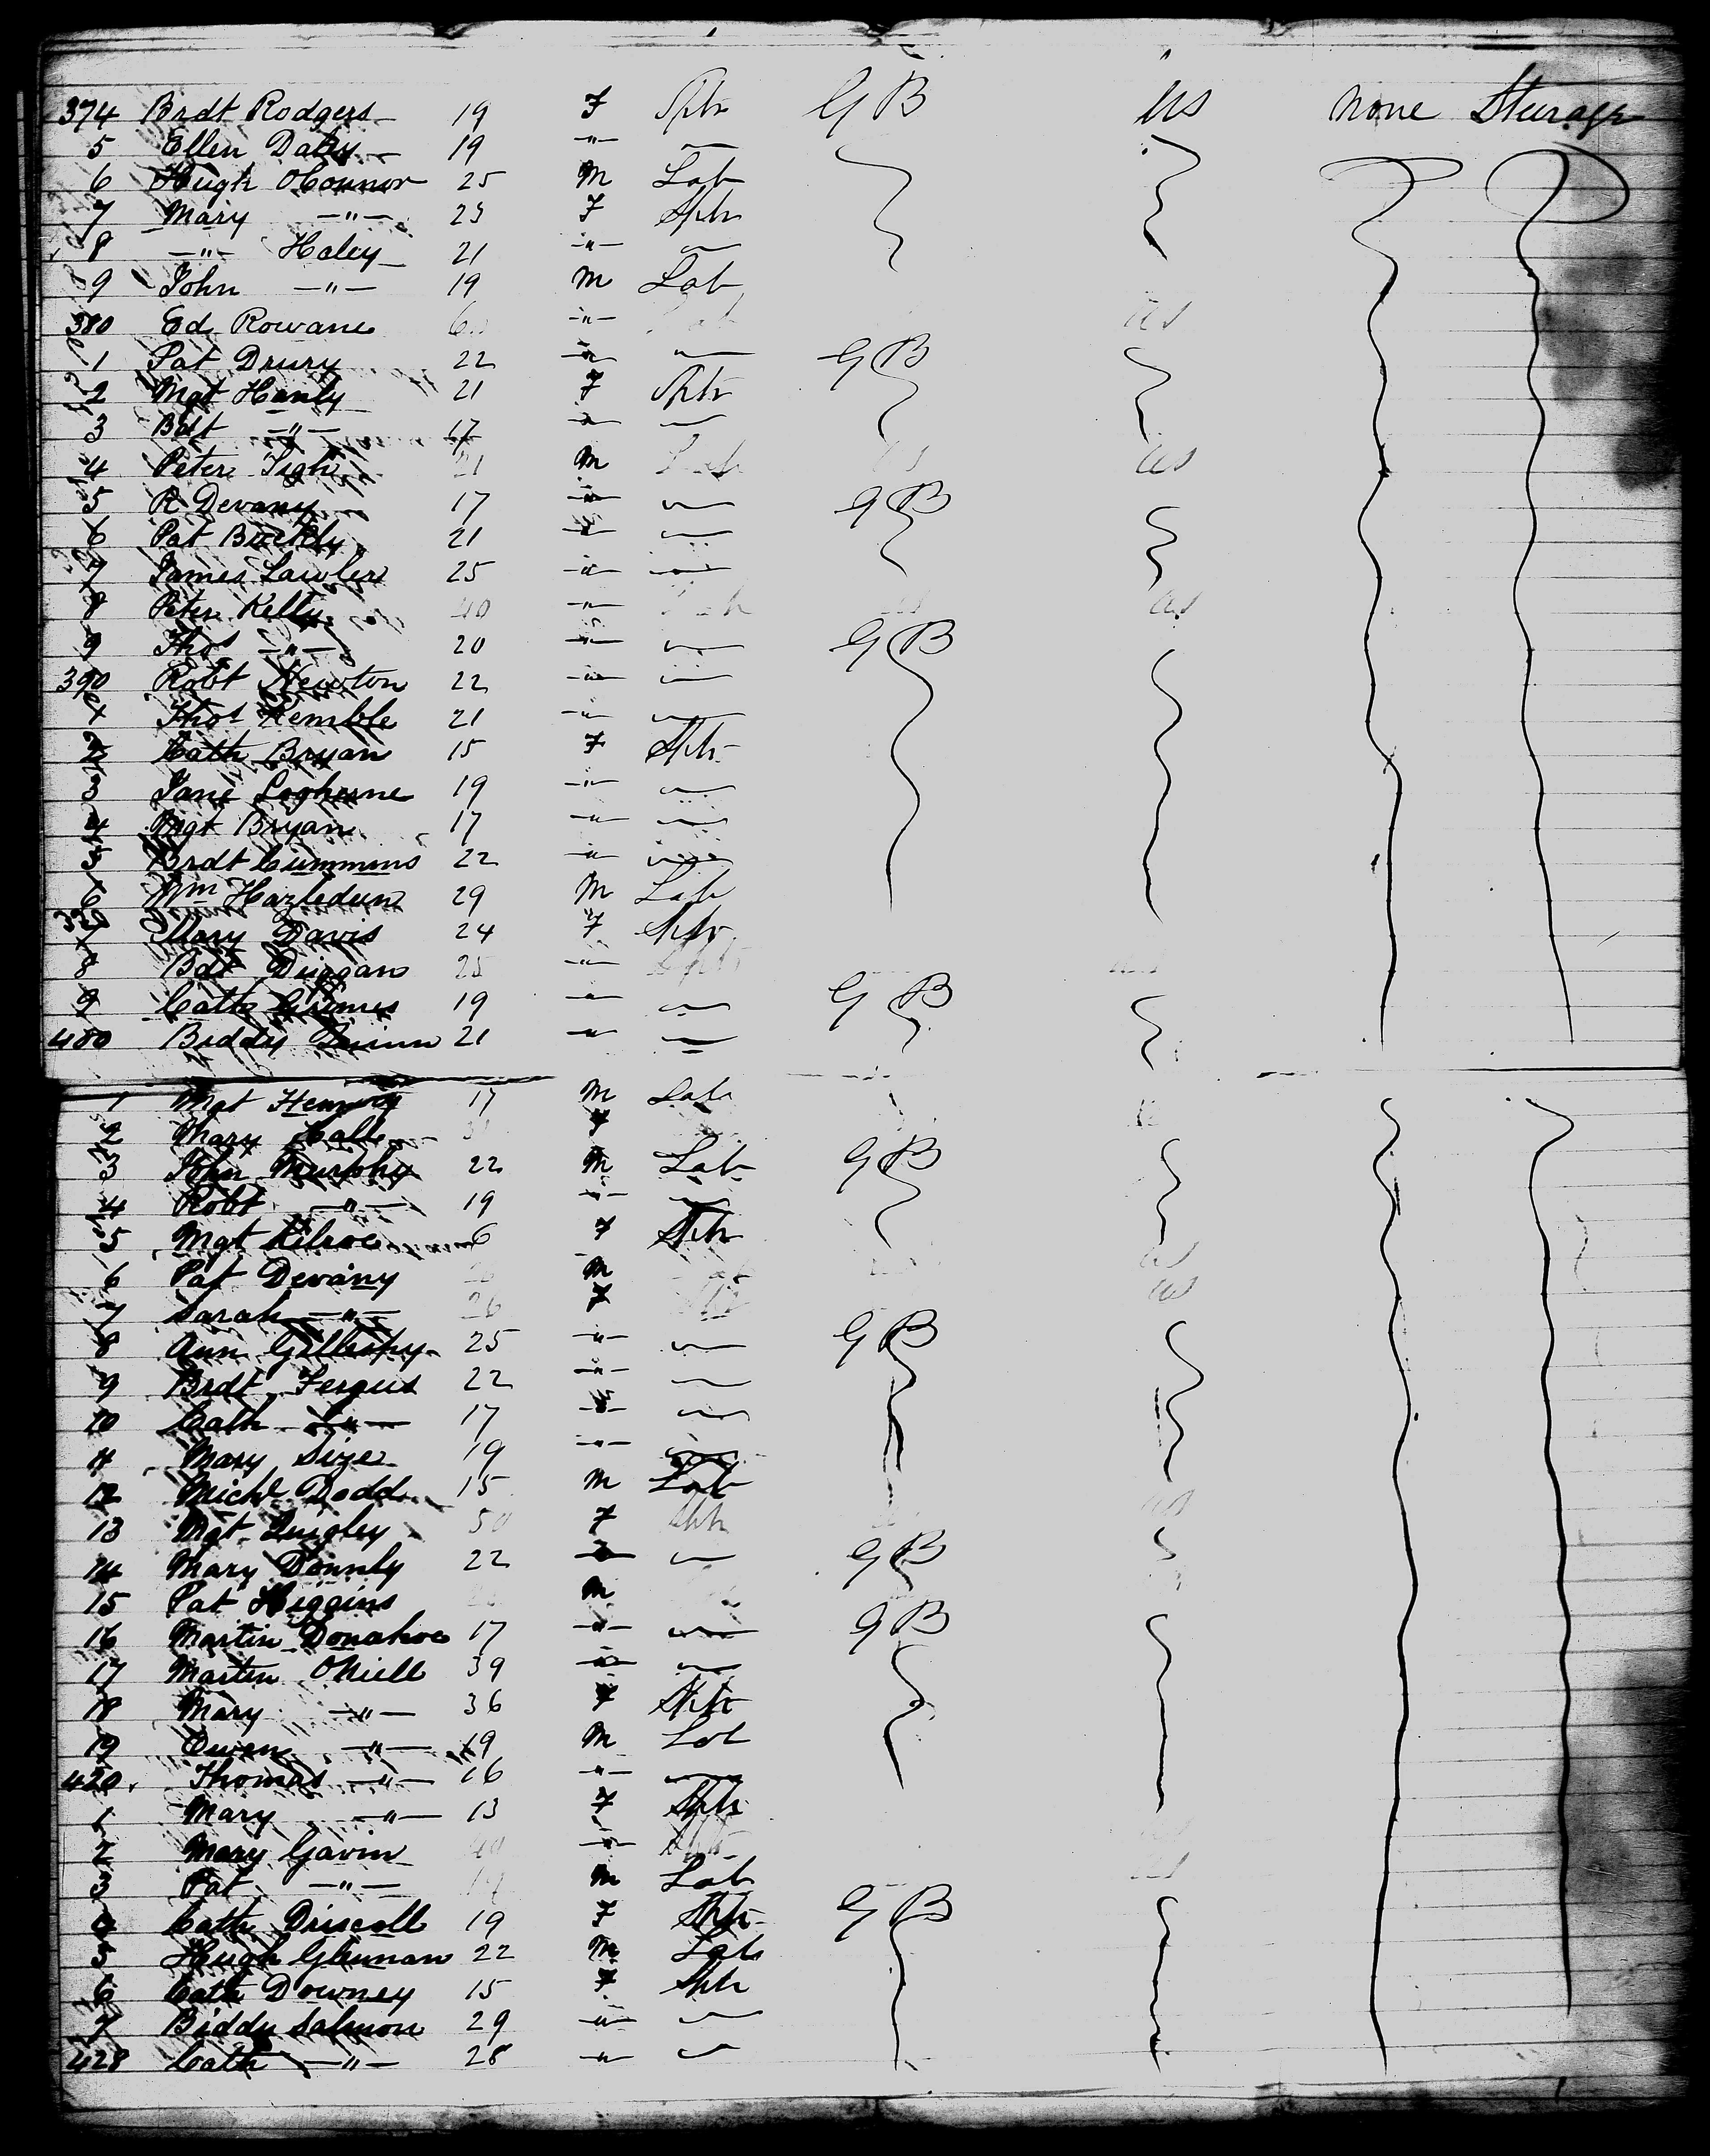 374 Brdt Rodgers 19 F Sptr G B US None Steerage
5 Ellen Daley 19 "
6 Hugh OConnor 25 M Lab
7 Mary " 23 F Sptr
8 " Haley 21 "
9 John " 19 M Lab
380 Ed Rowane " US
1 Pat Drury 22 " G B
2 Mgt Hanly 21 F Sptr
3 Bdt " 17 "
4 Peter Tigh 21 M US
5 R Devany 17 " G B
6 Pat Buckly 21 "
7 James Lawler 25 "
8 Peter Kelly 40 " US
9 Thos " 20 " G B
390 Robt Newton 22 "
1 Thos Kemble 21 "
2 Cath Bryan 15 F Sptr
3 Jane 19 "
4 Mgt Bryan 17 "
5 Brdt Cummins 22 "
6 Wm Hazledeen 29 M Lab
7 Mary Davis 24 F Sptr
8 Bdt Duggan 25 "
9 Cath Grimes 19 " G B
400 Biddy Quinn 21 "
1 Mgt 17 M Lab
2 Mary F
3 John Murphy 22 M Lab G B
4 Robt " 19 "
5 Mgt Kilroe 6 F Sptr
6 Pat Devany M US
7 Sarah " 26 F US
8 Ann Gillespy 25 " G B
9 Brdt Fergus 22 "
10 Cath " 17 "
11 Mary Size 19 "
12 Michl Dodd 15 M Lab
13 Mgt Quigley 50 F Sptr
14 Mary Donnly 22 " G B
15 Pat Higgins M
16 Martin Donahoe 17 " G B
17 Marten ONiell 39 "
18 Mary " 36 F Sptr
19 Owen " 19 M Lab
420 Thomas " 16 "
1 Mary " 13 F Sptr
2 Mary Gavin 40 " Sptr
3 Pat " M Lab
4 Cath Driscoll 19 F Sptr G B
5 Hugh Glennan 22 M Lab
6 Cath Downey 15 F Sptr
7 Biddy Salmon 29 "
428 Cath " 28 "